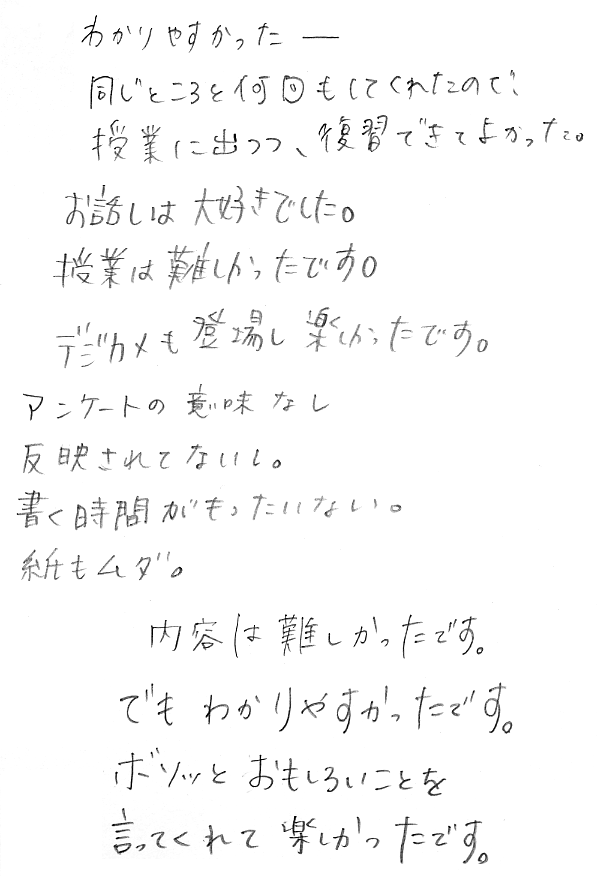 わかりやすかったー
同じところを何回もしてくれたので、
授業に出つつ、復習できてよかった。
お話しは大好きでした。
授業は難しかったです。
デジカメも登場し楽しかったです。
アンケートの意味なし
反映されてないし。
書く時間がもったいない。
紙もムダ。
内容は難しかったです。
でもわかりやすかったです。
ボソッとおもしろいことを
言ってくれて楽しかったです。